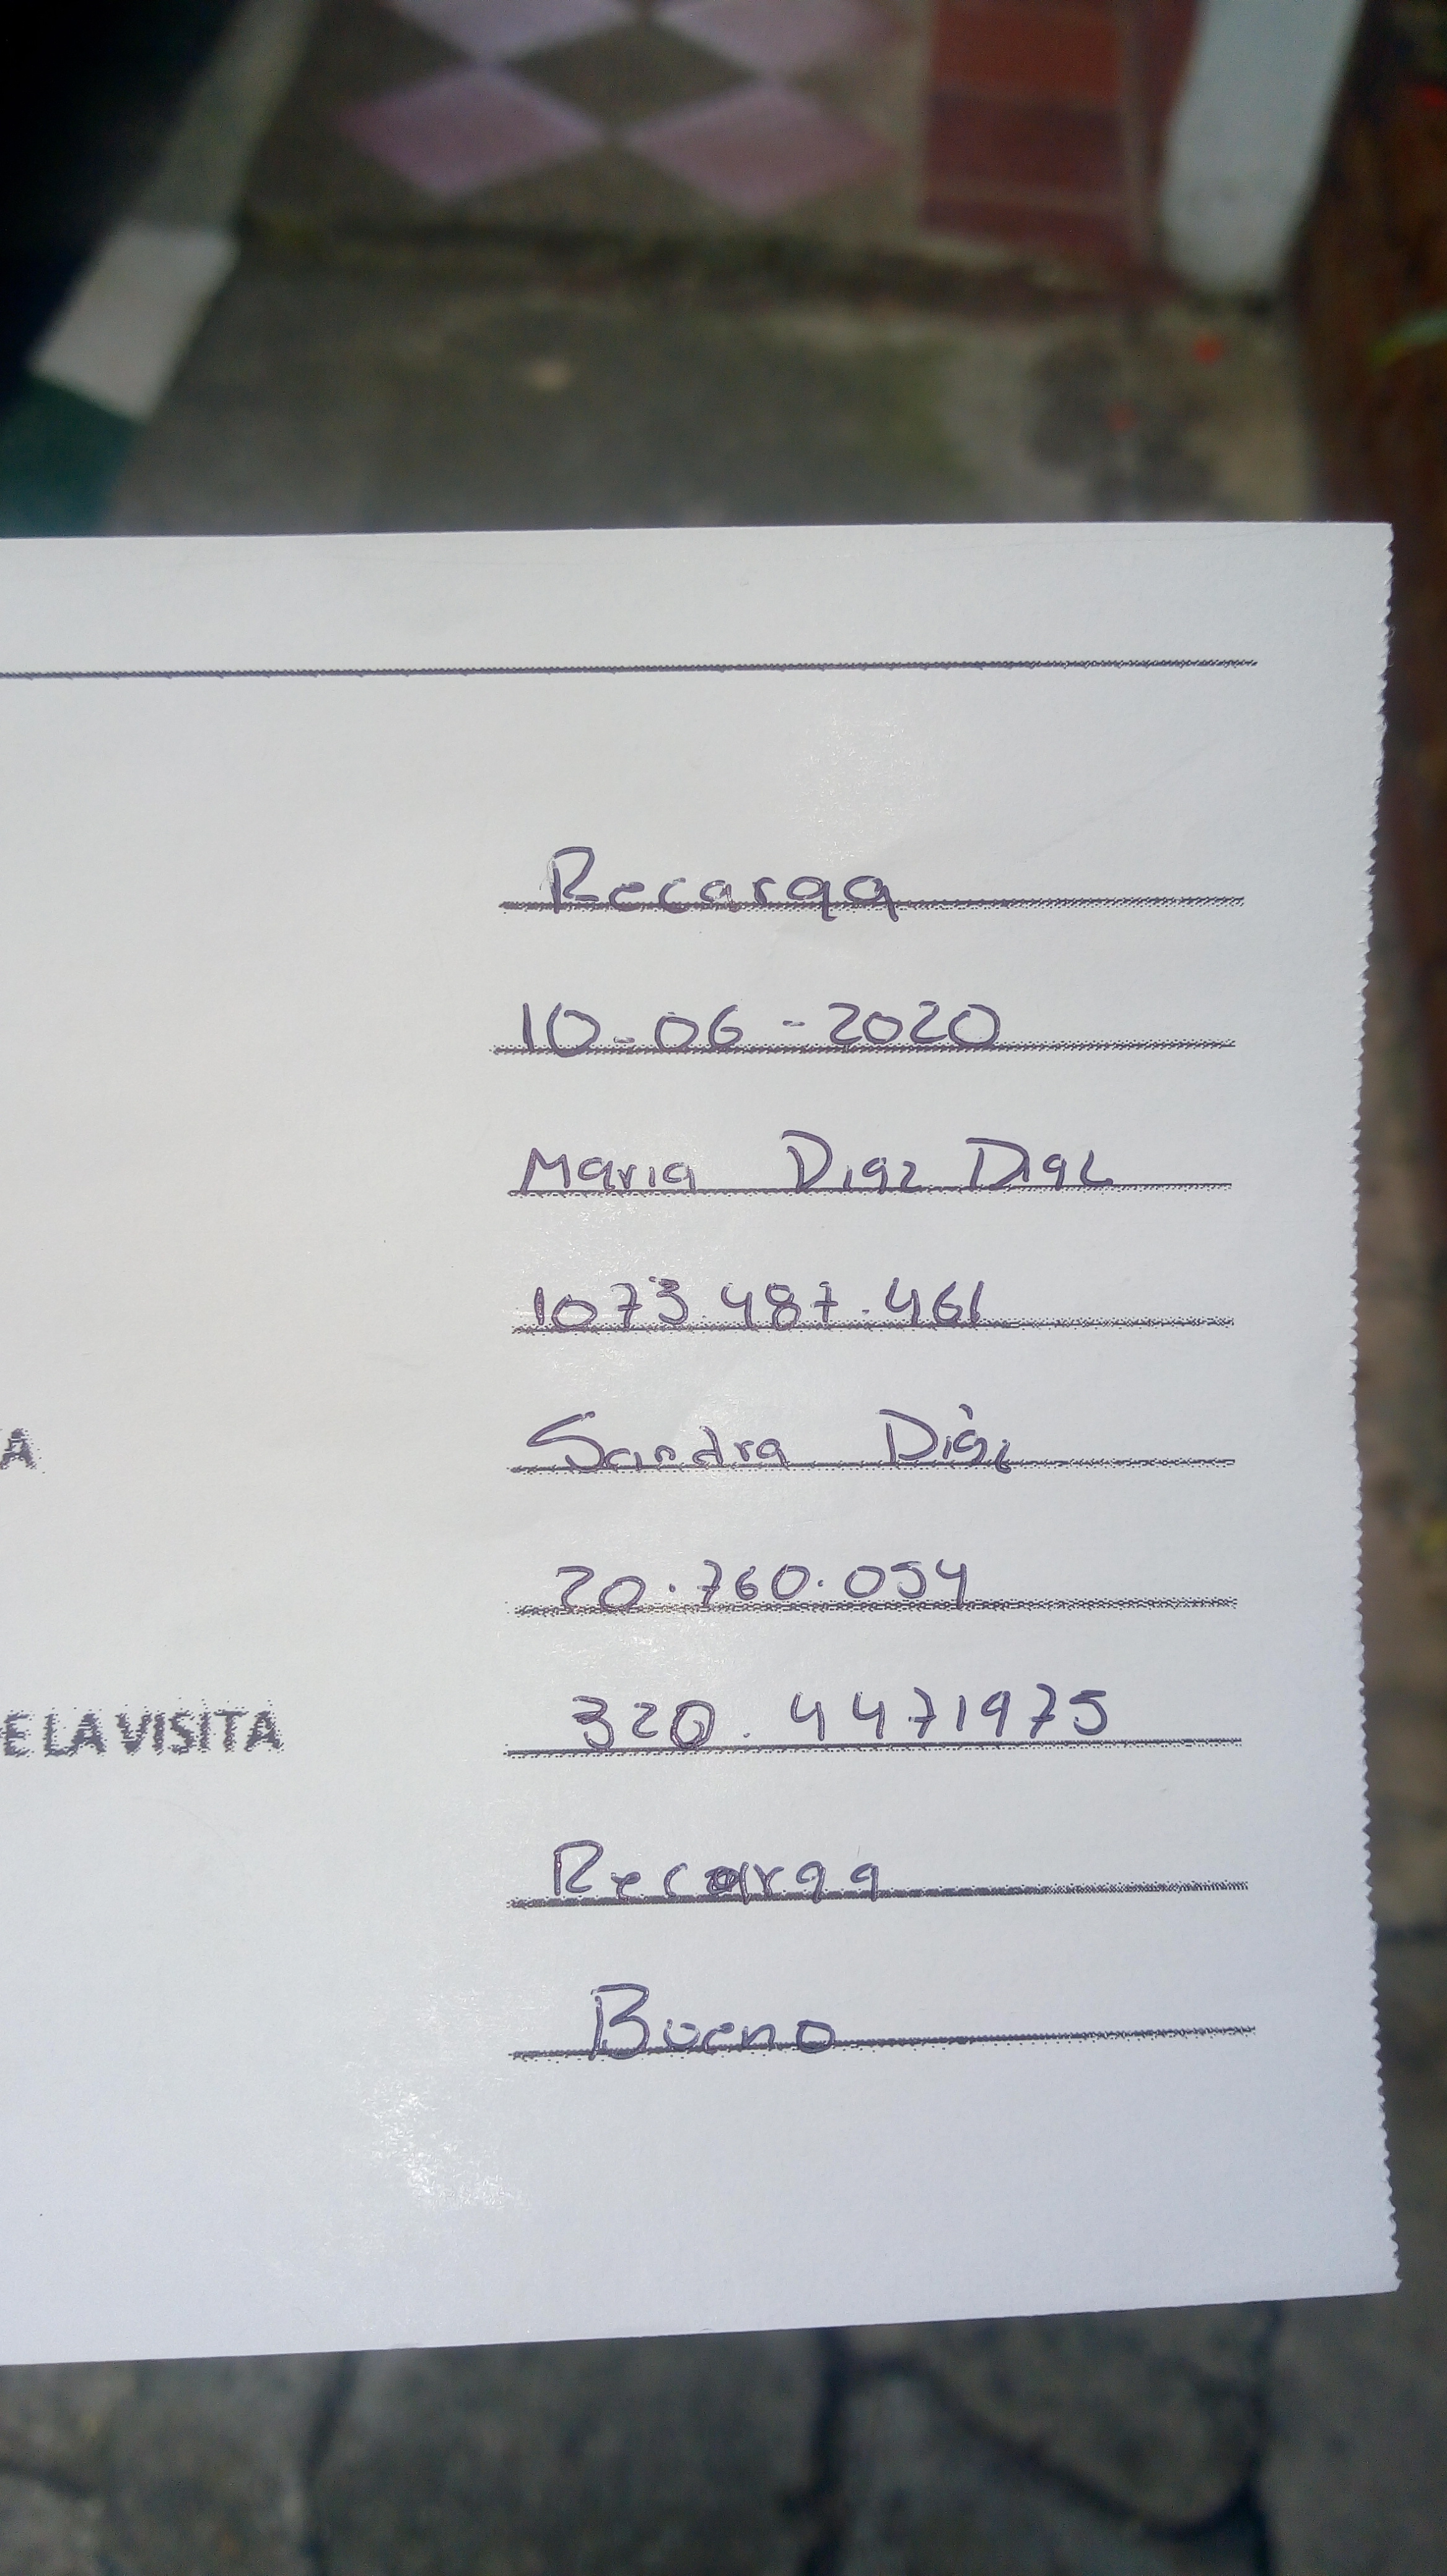 Recarga
10-06-2020
Maria Diaz Diaz
1073.487.461
A Sandra Diàz
20.760.054
E LA VISITA 320.4471975
Recarga
Bueno